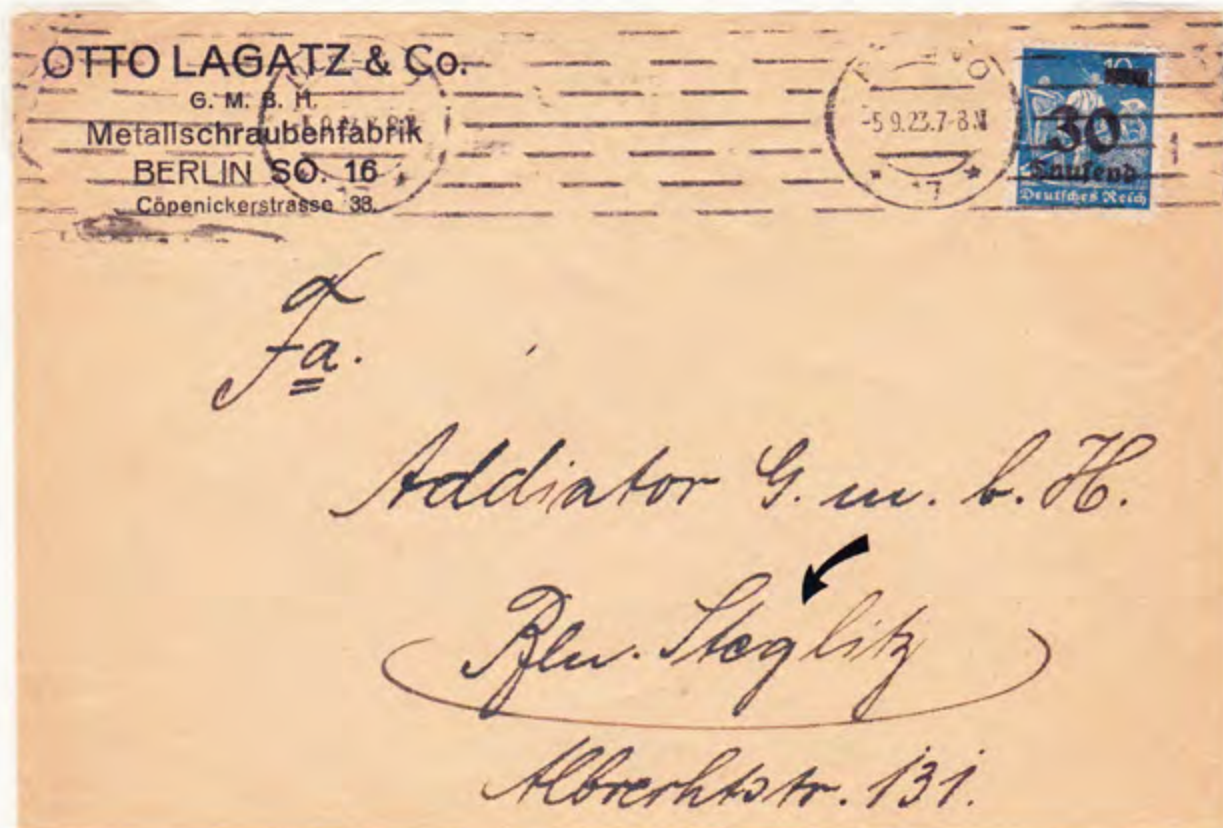 OTTO LAGATZ & Co.
G. M. B. H.
Metallschraubenfabrik
BERLIN SO. 16
Cöpenickerstrasse 38.
-5.9.23.7-8.N
17
1
10
30
Tausend
Deutsches Reich
Fa.
Addiator G. m. b. H.
Bln. Steglitz
Albrechtstr. 131.